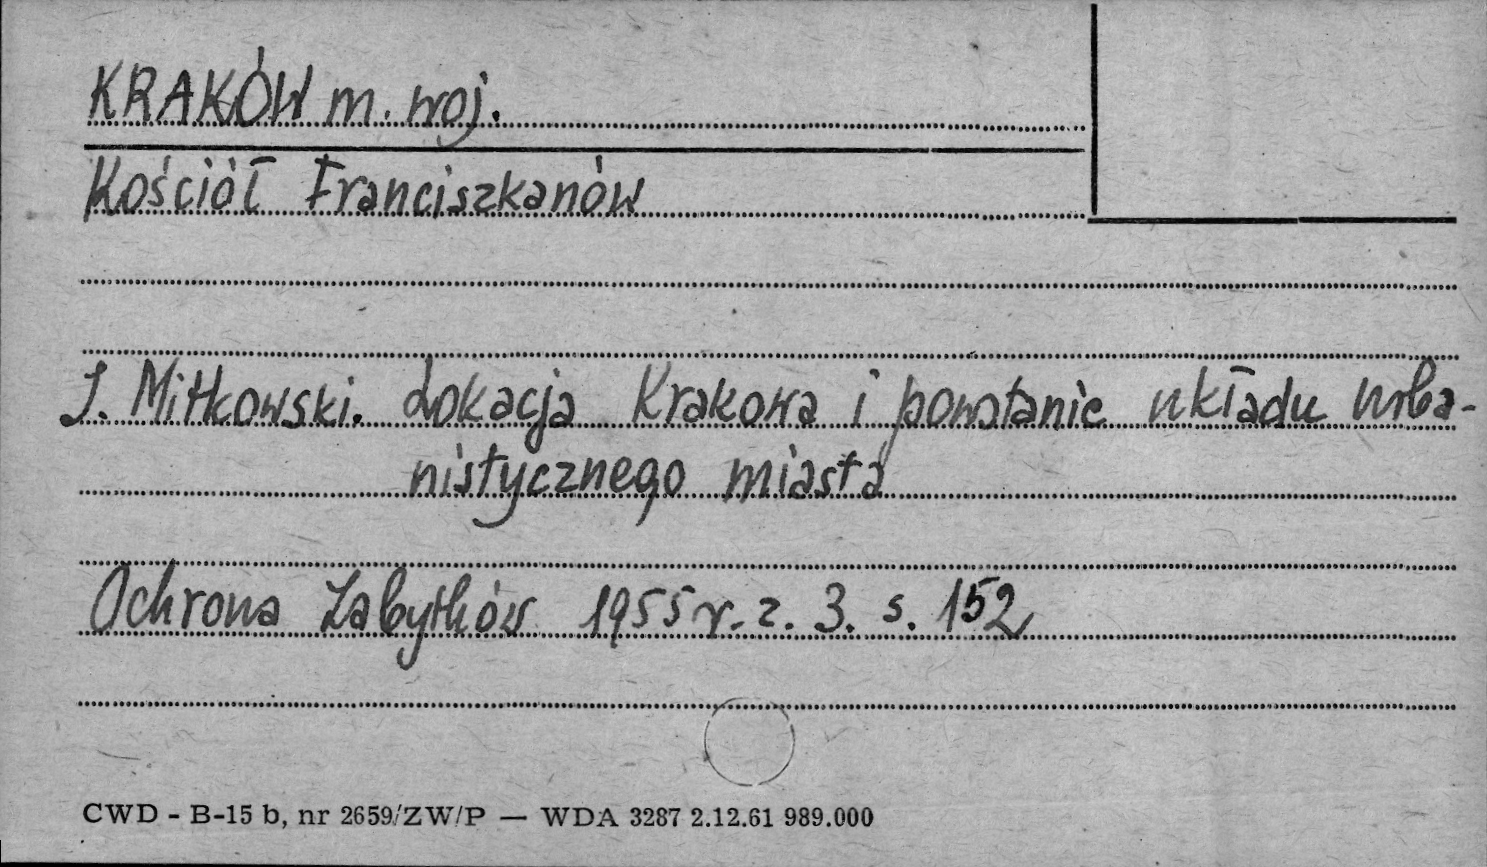 KRAKÓW m. woj.
Kościół Franciszkanów
J. Mitkowski. Lokacja Krakowa i powstanie układu urba-
nistycznego miasta
Ochrona Zabytków 1955 r. z. 3. s. 152
CWD - B-15 b, nr 2659/ZW/P — WDA 3287 2.12.61 989.000